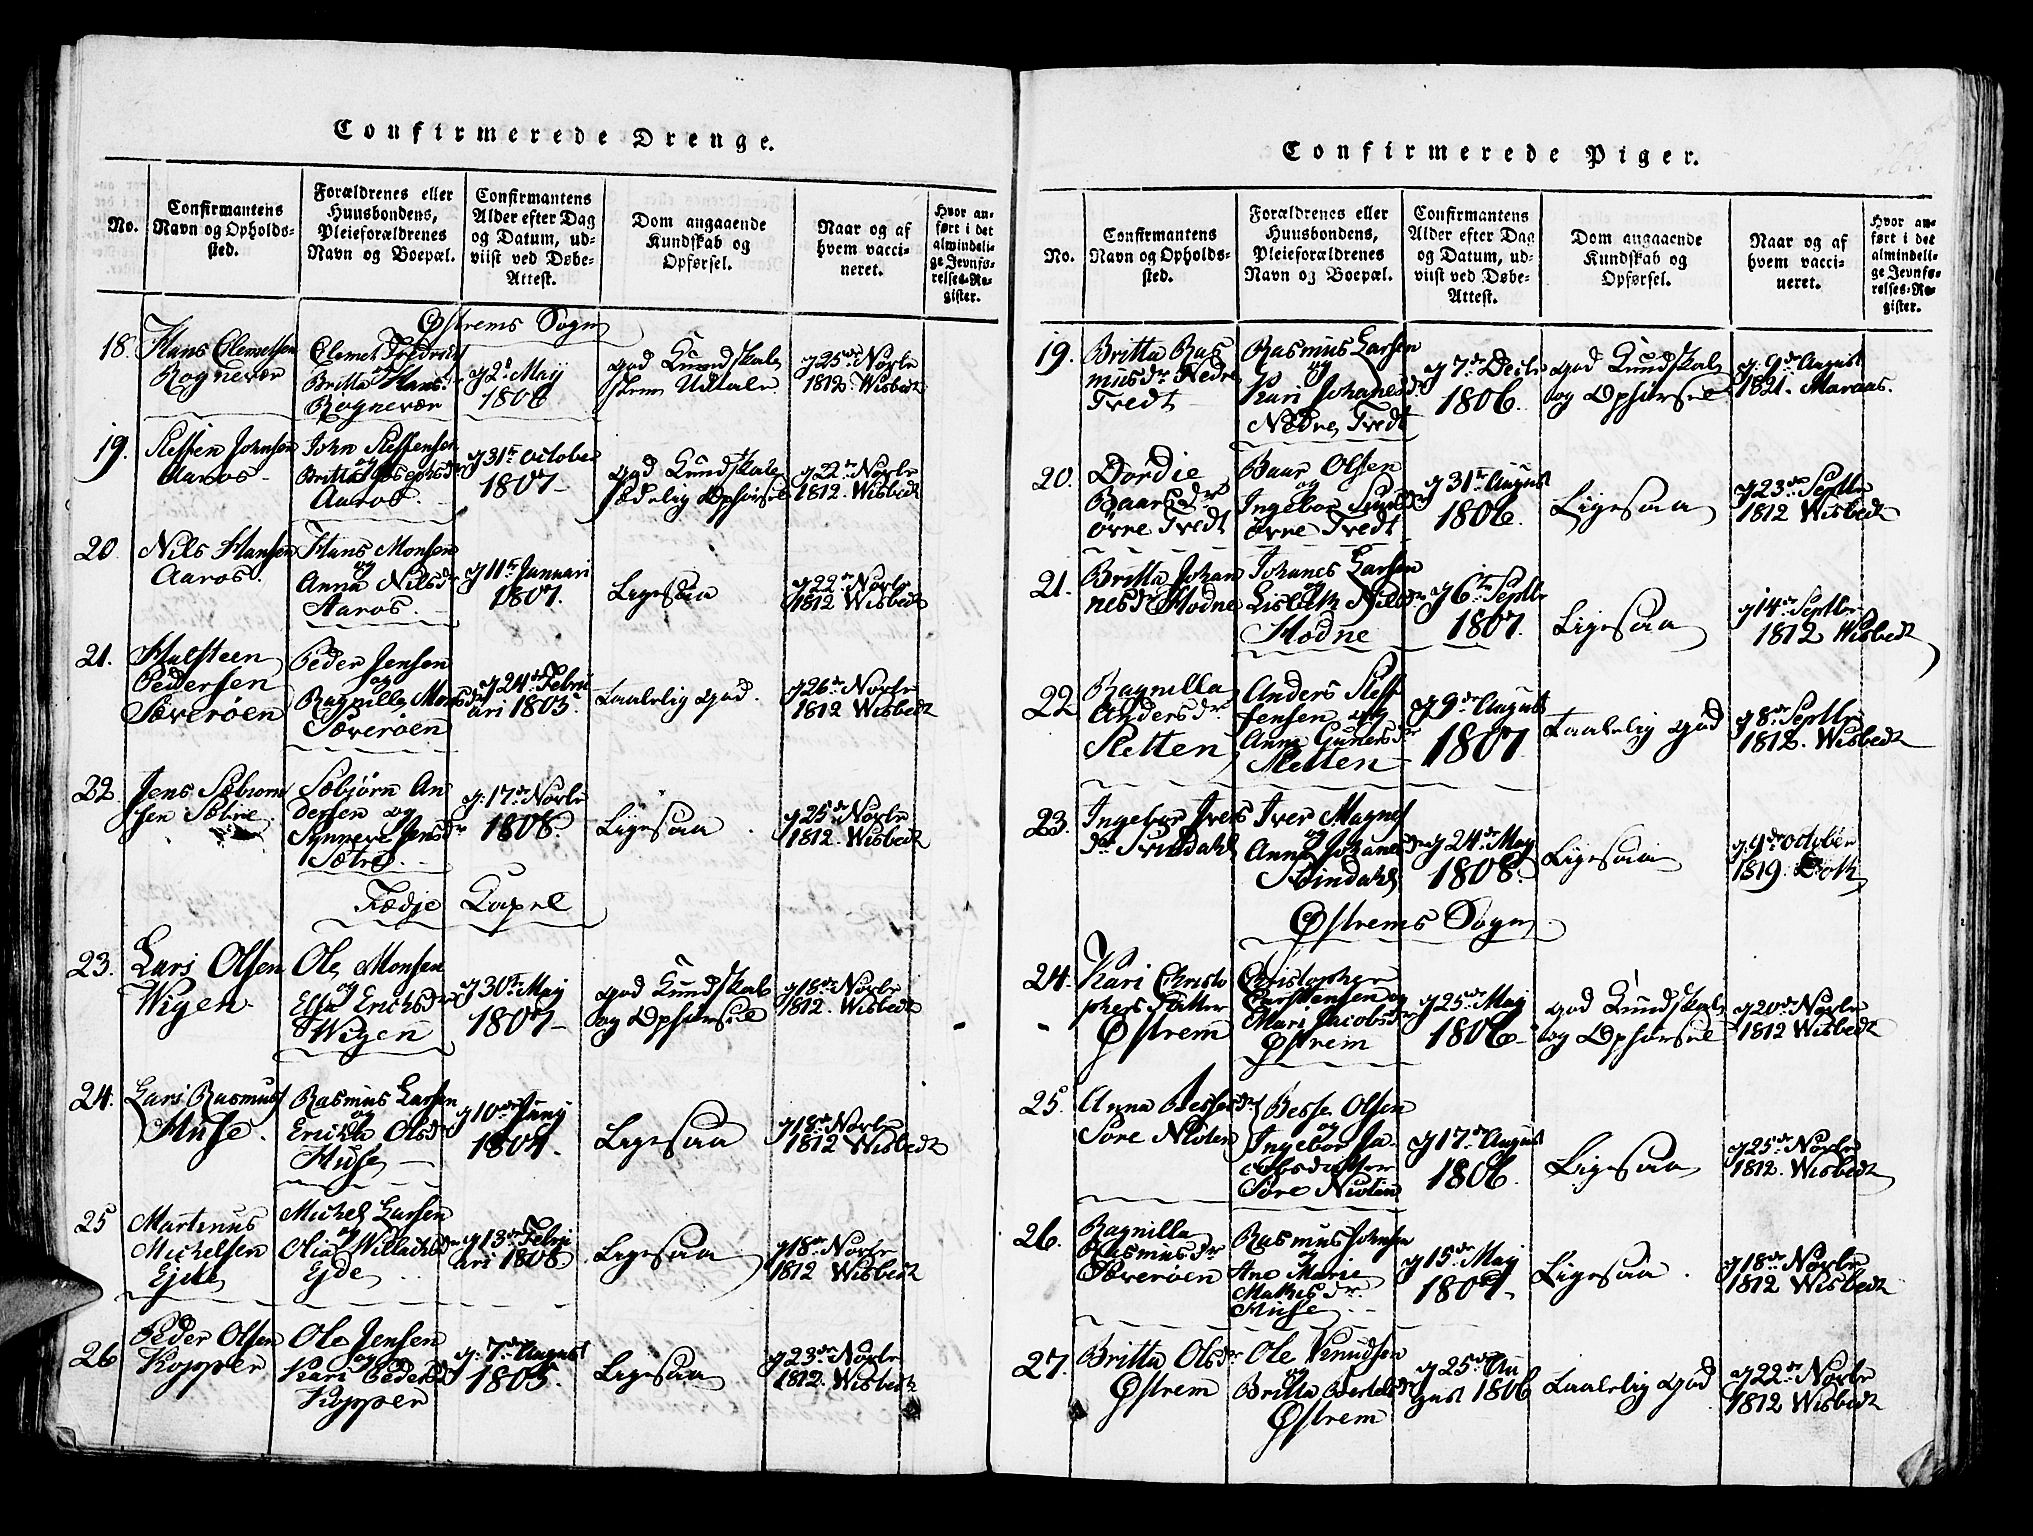 Confirmerede Drenge.
No.
Confirmantens
Navn og Opholds-
sted.
Forældrenes eller
Huusbondens,
Pleieforældrenes
Navn og Boepæl.
Confirmantens
Alder efter Dag
og Datum, ud-
viist ved Døbe-
Attest.
Dom angaaende
Kundskab og
Opførsel.
Naar og af
hvem vacci-
neret.
Hvor an-
ført i det
almindeli-
ge Jevnfø-
relses-Re-
gister.
Østrems Sogn
18.
Hans Clemetsen
Rognevær
Clemet
og
Britta Hans
Rognevær
g 2d Maij
1806
god Kundskab
Udtale
g 25de Novbr
1812. Wisbedt
19.
Steffen Johnsen
Aaros
John Steffensen
og
Britta
Aaros.
g 31te October
1807
god Kundskab
Sædelig Opførsel
g 22de Novbr
1812. Wisbedt
20.
Nils Hansen
Aaros.
Hans Monsen
og
Anna Nilsdr
Aaros.
g 11te Januari
1807.
Ligesaa
g 22de Novbr
1812 Wisbedt
21.
Halsteen
Pedersen
Sæverøen
Peder Jensen
og
Ragnilla Monsdr
Sæverøen
g 24de Febru
ari 1805
Taalelig god.
g 26de Novbr
1812 Wisbedt
22
Jens Sæbiorn
sen Sætre
Sæbjørn An
dersen og
Synneve Jensdr
Sætre
g: 17de Novbr
1808.
Ligesaa
g 25de Novbr
1812. Wisbedt
Fædje Capel
23.
Lars Olsen
Wigen
Ole Monsen
og
Elsa Ericksdr
Wigen
g 30te Maij
1807
god Kundskab
og Ophørsel
g 18de Novbr
1812. Wisbedt
24.
Lars Rasmuss
Huse.
Rasmus Larsen
og
Ericka Olsdr
Huse
g 10de Junij
1807.
Ligesaa
g 18de Novbr
1812 Wisbedt
25
Martinus
Michelsen
Ejde
Michel Larsen
og
Olia Willacksdr
Ejde
g 13de Febru
ari 1808
Ligesaa
g 18de Novbr
1812 Wisbedt
26
Peder Olsen
Kopper
Ole Jensen
og
Kari Pedersdr
Kopper
g: 7de August
1805.
Ligesaa
g 23de Novbr
1812. Wisbedt
Confirmerede Piger.
No.
Confirmantens
Navn og Opholds-
sted.
Forældrenes eller
Huusbondens,
Pleieforældrenes
Navn og Boepæl.
Confirmantens
Alder efter Dag
og Datum, ud-
viist ved Døbe-
Attest.
Dom angaaende
Kundskab og
Opførsel.
Naar og af
hvem vacci-
neret.
Hvor an-
ført i det
almindeli-
ge Jevnfø-
relses-Re-
gister.
19.
Britta Ras
musdr Nedre
Tvedt
Rasmus Larsen
og
Kari Johanesdr
Nedre Tvedt
g 7de Decbr
1806.
god Kundskab
og Ophørsel
g: 9de August
1821. Maraas.
20.
Dordie
Baarsdr
øvre Tvedt
Baar Olsen
og
Ingebor
øvre Tvedt
g 31te August
1806.
Ligesaa
g 23de Septbr
1812 Wisbedt
21.
Britta Johan
nesdr Hodne
Johanes Larsen
og
Lisbeth Nilsdr
Hodne
g 6te Septbr
1807.
Ligesaa
g 14de Septbr
1812 Wisbedt
22
Ragnilla
Andersdr
Sletten
Anders Stef
fensen og
Anna Gunersdr
Sletten
g 9de August
1807
Taalelig god
g 8de Septbr
1812. Wisbedt
23.
Ingebor Ivers
dr Svindahl
Iver Magnes
og
Anna Johanesdr
Svindahl
g 24de Maij
1808.
Ligesaa
g 9de october
1819.
Østrems Sogn
24.
Kari Christo
phers Datter
Østrem
Christopher
Carstensen og
Mari Jacobsdr
Østrem
g 25de Maij
1806
god Kundskab
og Ophørsel
g 20de Novbr
1812 Wisbedt
25.
Anna Bessesdr
Sore
Besse Olsen
og
Ingebor Ja-
cobsdatter
Sore
g 17de August
1806.
Ligesaa
g 25de Novbr
1812. Wisbedt
26.
Ragnilla
Rasmusdr
Sæverøen
Rasmus Johnsen
og
Ane Marie
Mathisdr
Huse
g 15de Maij
1807
Ligesaa.
g 18de Novbr
1812 Wisbedt
27.
Britta Olsdr
Østrem
Ole Knudsen
og
Britta Bertelsdr
Østrem
g 25de Au
gust 1806
Taalelig god
g 22de Novbr
1812 Wisbedt